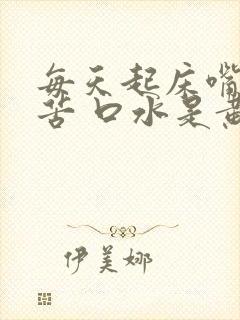 每天起床嘴
苦 口水是黄
伊美娜